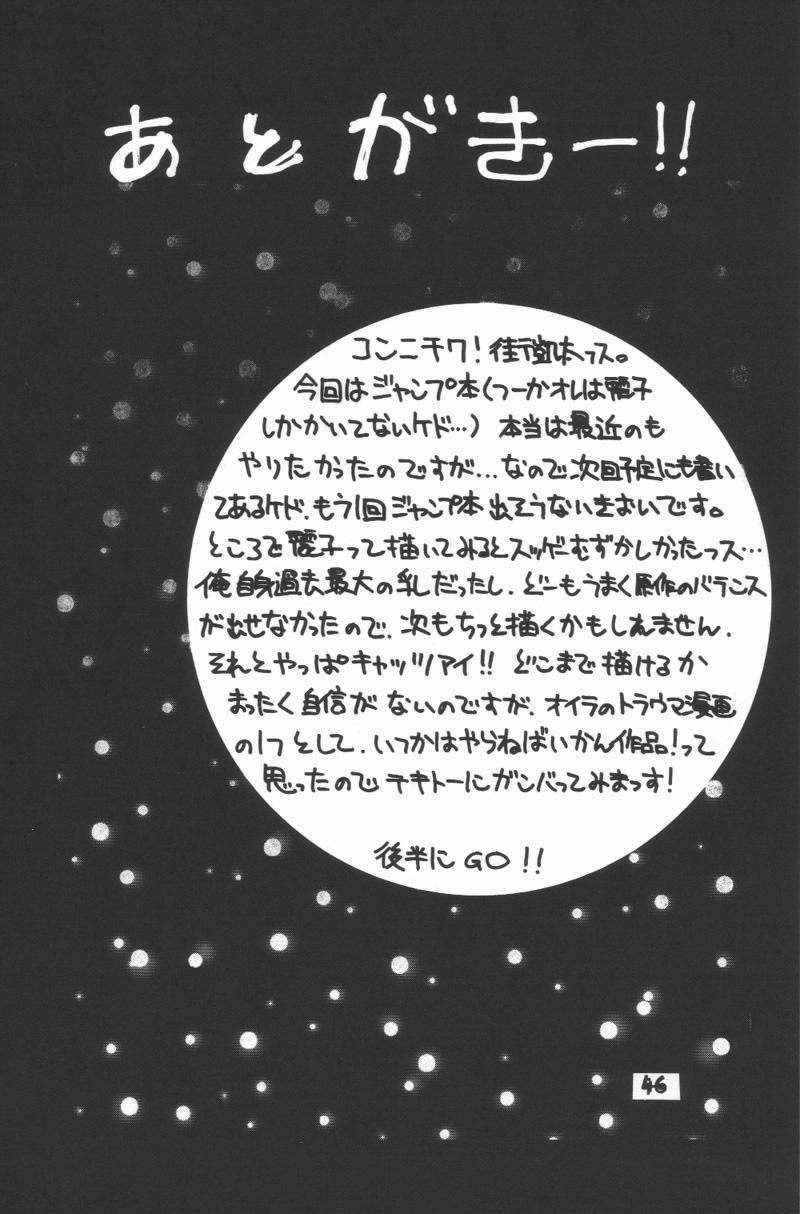 あとがきー!!
コンニチワ!街道はっス。
今回はジャンプ本(つーかオレは麗子
しかかいてないケド…)本当は最近のも
やりたかったのですが…なので次回予定にも書い
てあるケド、もう1回ジャンプ本出そうないきおいです。
ところで麗子って描いてみるとスッゲーむずかしかったっス…
俺自身過去最大の乳だったし、どーもうまく原作のバランス
が出せなかったので、次もちっと描くかもしえません。
それとやっぱキャッツアイ!!どこまで描けるか
まったく自信がないのですが、オイラのトラウマ漫画
の1つとして、いつかはやらねばいかん作品!って
思ったのでテキトーにガンバってみまっす!
後半にGO!!
46